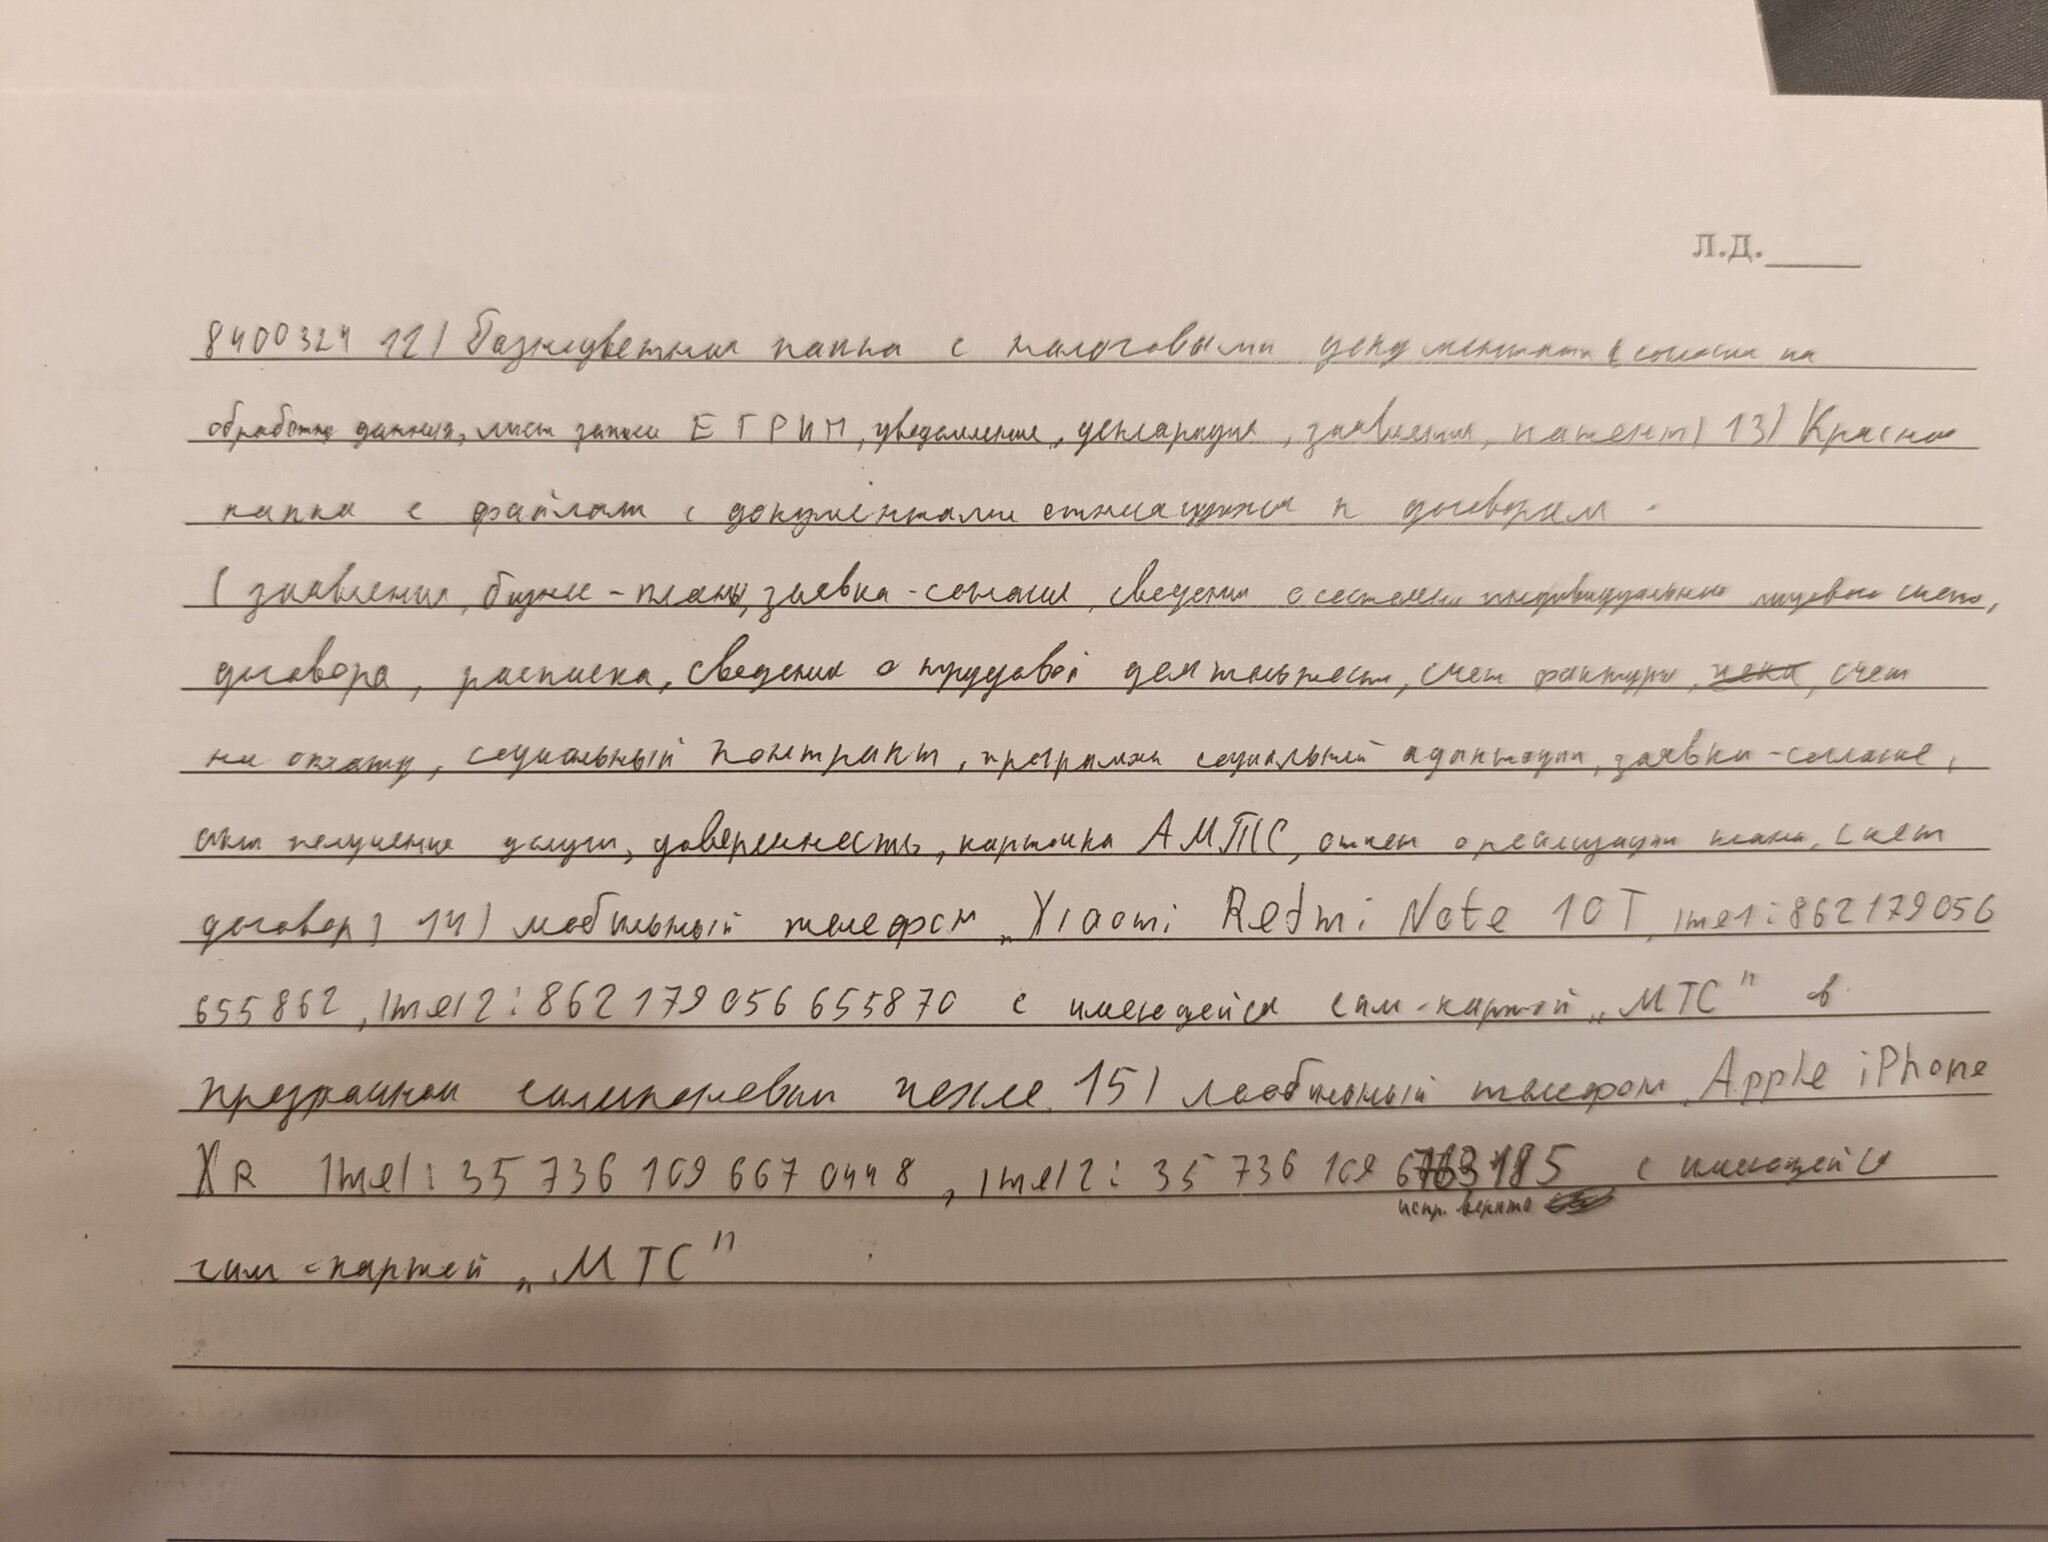 Л.Д.
8400324 12) Разноцветная папка с налоговыми документами (согласия на
обработку данных, лист записи ЕГРИП, уведомление, декларация, заявления, патент) 13) Красная
папка с файлами с документами относящихся к договорам
(заявления, бизнес-планы, заявка-согласие, сведения о состоянии индивидуального лицевого счета,
договора, расписка, сведения о трудовой деятельности, счет фактуры, чека, счет
на оплату, социальный контракт, программа социальной адаптации, заявка-согласие,
акт получение услуги, доверенность, карточка АМТС, отчет о реализации плана, счет
договор) 14) мобильный телефон „Xiaomi Redmi Note 10T, imei1: 862179056
655862, imei2: 862179056655870 с имеющейся сим-картой „МТС" в
прозрачном силиконовом чехле 15) мобильный телефон Apple iPhone
XR imei: 35 736 109 667 0448, imei2: 35 736 109 с имеющейся
испр. верить
сим-картой „МТС"